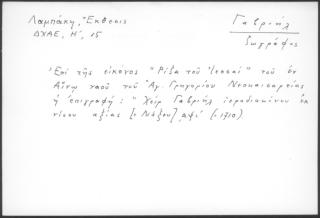 Λαμπάκη, Ἔκθεσις
ΔΧΑΕ, Η΄, 15
Γαβριήλ
ζωγράφος
Ἐπί τῆς εἰκόνος "Ρίζα τοῦ Ἰεσσαί" τοῦ ἐν
Αἴνῳ ναοῦ τοῦ Ἁγ. Γρηγορίου Νεοκαισαρείας
ἡ ἐπιγραφή: "Χείρ Γαβριήλ ἱεροδιακόνου
[Νάξου] αψι΄ (=1710).